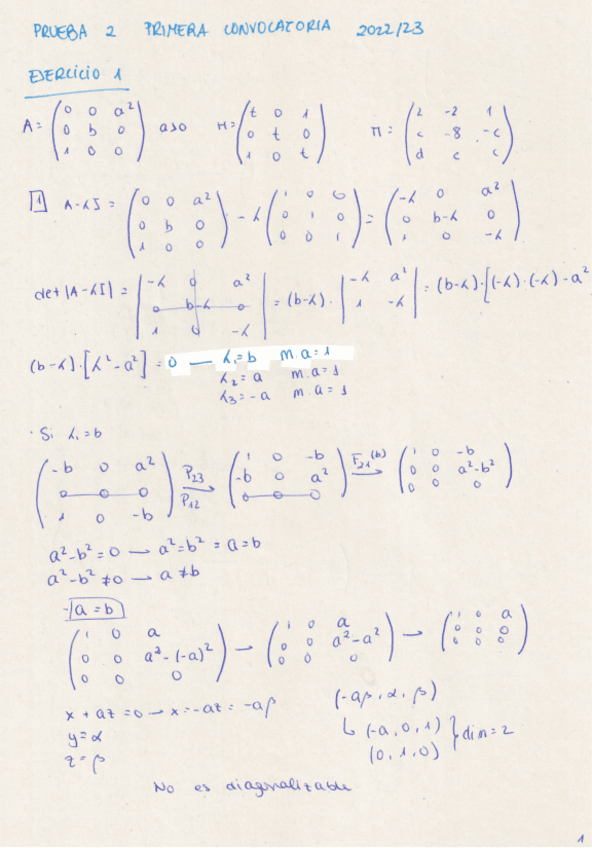 PRUEBA 2 PRIMERA CONVOCATORIA 2022/23
EJERCICIO 1
A = (0 0 a² / 0 b 0 / 1 0 0) a≥0 M = (t 0 1 / 0 t 0 / 1 0 t) Π = (2 -2 1 / c -8 -c / d c c)
1 A-λI = (0 0 a² / 0 b 0 / 1 0 0) - λ (1 0 0 / 0 1 0 / 0 0 1) = (-λ 0 a² / 0 b-λ 0 / 1 0 -λ)
det |A-λI| = |-λ 0 a² / 0 b-λ 0 / 1 0 -λ| = (b-λ)· |-λ a² / 1 -λ| = (b-λ)·[(-λ)·(-λ)-a²
(b-λ)·[λ²-a²] = 0 — λ₁=b m.a=1
λ₂=a m.a=1
λ₃=-a m.a=1
· Si λ₁=b
(-b 0 a² / 0 0 0 / 1 0 -b) P23 → P12 (1 0 -b / -b 0 a² / 0 0 0) F21(b) → (1 0 -b / 0 0 a²-b² / 0 0 0)
a²-b²=0 → a²=b² = a=b
a²-b²≠0 → a≠b
-|a=b|
(1 0 a / 0 0 a²-(-a)² / 0 0 0) → (1 0 a / 0 0 a²-a² / 0 0 0) → (1 0 a / 0 0 0 / 0 0 0)
x+az=0 → x=-az=-aβ (-aβ, α, β)
y=α ↳ (-a,0,1) } dim=2
z=β (0,1,0)
No es diagonalizable
1